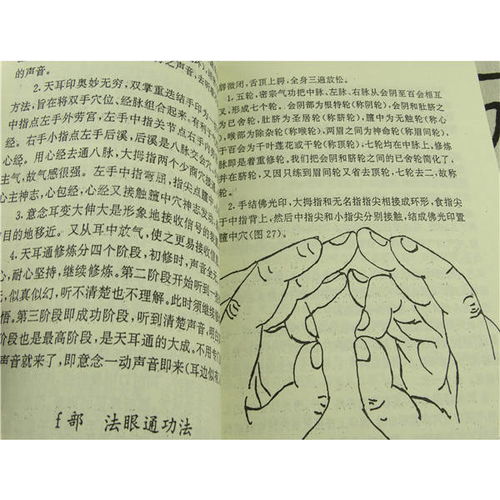 的声音。
2.天耳印奥妙无穷，双掌重迭结手印为
方法，旨在将双手穴位、经脉组合起来，有利于
中指点左手外劳宫，左手中指关节点右手内
经。右手小指点左手后溪，后溪是八脉交会穴
心经。用心经去通八脉，大拇指两个少商穴接
主气，故气感很强。左手中指弯屈，指尖点膻中
心主神志，心包经，心经又接触膻中穴神志
3.意念耳变大伸大是形象地接收信号的
目的地移近。又从耳中放气，使之更易接收信
4.天耳通修炼分四个阶段，初修时，声音全
，耐心坚持，继续修炼。第二阶段开始听到一
，似真似幻，听不清楚也不理解。此时须继续
悟。第三阶段即成功阶段，听到清楚声音，明
阶段也是最高阶段，是天耳通的大成。不用
声音就来了，即意念一动声音即来(耳边似有
f部 法眼通功法
微闭，舌顶上腭，全身三遍放松。
1.五轮，密宗气功把中脉、左脉、右脉从会阴至百会相互
叉，形成七个轮。会阴部为根特轮(称阴轮)，会阴和肚脐之
为己舍轮，肚脐为圣居轮(称脐轮)，膻中为无触轮(称心
喉部为除杂轮(称喉轮)，两眉之间为神命轮(称眉间轮)，
百会为千叶莲花或千轮(称顶轮)，七轮均在中脉上，修炼
脉即是着重修轮。我们把会阴和脐轮之间的已舍轮简化了，
又因只练到眉间轮又省去了顶轮，七轮去二，故称
2.手结佛光印，大拇指和无名指指尖相接成环形，食指尖
于中指背上，然后中指尖和小指尖分别接触，结成佛光印置
膻中穴(图27)。